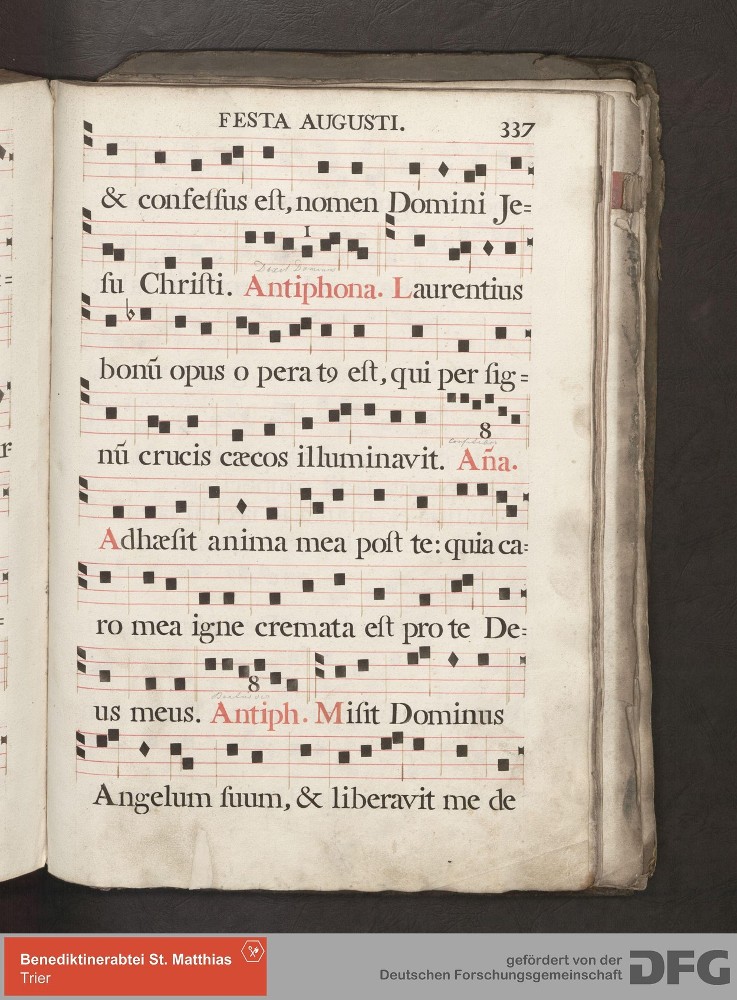 FESTA AUGUSTI. 337
& confeſſus eſt, nomen Domini Je=
1
ſu Chriſti. Antiphona. Laurentius
bonū opus o pera t9 eſt, qui per ſig=
8
nū crucis cæcos illuminavit. Añа.
Adhæſit anima mea poſt te: quia ca=
ro mea igne cremata eſt pro te De=
8
us meus. Antiph. Miſit Dominus
Angelum ſuum, & liberavit me de
Benediktinerabtei St. Matthias
Trier
gefördert von der
Deutschen Forschungsgemeinschaft
DFG